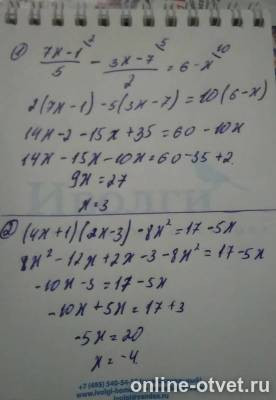 1) (7x-1)/5 ^2 - (3x-7)/2 ^5 = 6-x ^10
2(7x-1)-5(3x-7)=10(6-x)
14x-2-15x+35=60-10x
14x-15x-10x=60-35+2
9x=27
x=3
2) (4x+1)(2x-3)-8x²=17-5x
8x²-12x+2x-3-8x²=17-5x
-10x-3=17-5x
-10x+5x=17+3
-5x=20
x=-4.
online-otvet.ru